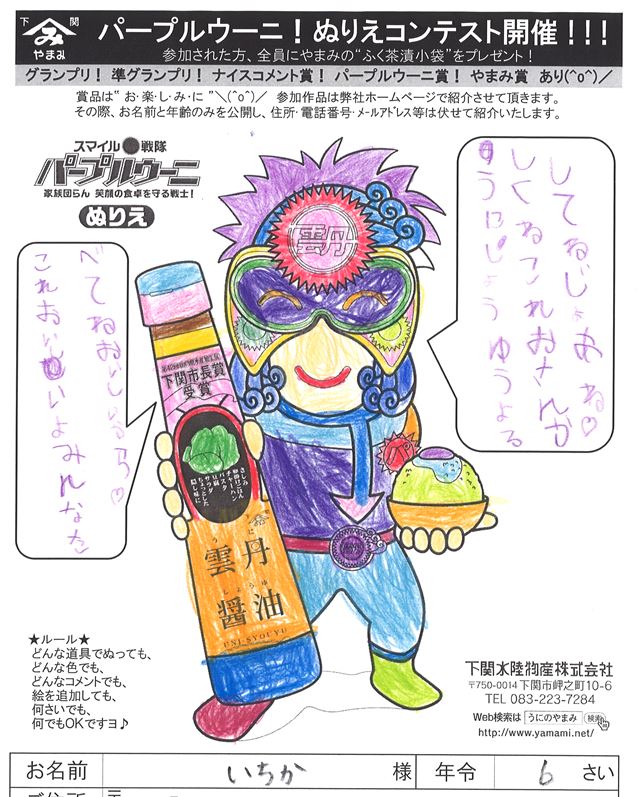 下 関
やまみ
パープルウーニ！ぬりえコンテスト開催！！！
参加された方、全員にやまみの“ふく茶漬小袋”をプレゼント！
グランプリ！ 準グランプリ！ ナイスコメント賞！ パープルウーニ賞！ やまみ賞 あり(^o^)／
賞品は“お・楽・し・み・に ”＼(^o^)／ 参加作品は弊社ホームページで紹介させて頂きます。
その際、お名前と年齢のみを公開し、住所・電話番号・メールアドレス等は伏せて紹介いたします。
スマイル戦隊
パープルウーニ
家族団らん 笑顔の食卓を守る戦士！
ぬりえ
雲丹
うにじょうゆうよる
しくねこれおさんか
してねじょあね♡
これおいしいよみんなた
べてねおいしいから♡
下関市長賞
受賞
さしみ
卵かけごはん
チャーハン
パスタ
豆腐
サラダ
ちょっとした
隠し味に
パ
うに
雲丹
しょうゆ
醤油
UNI-SYOUYU
★ルール★
どんな道具でぬっても、
どんな色でも、
どんなコメントでも、
絵を追加しても、
何さいでも、
何でもOKですヨ♪
下関水陸物産株式会社
〒750-0014 下関市岬之町10-6
TEL 083-223-7284
Web検索は うにのやまみ 検索
http://www.yamami.net/
お名前 いちか 様 年令 6 さい